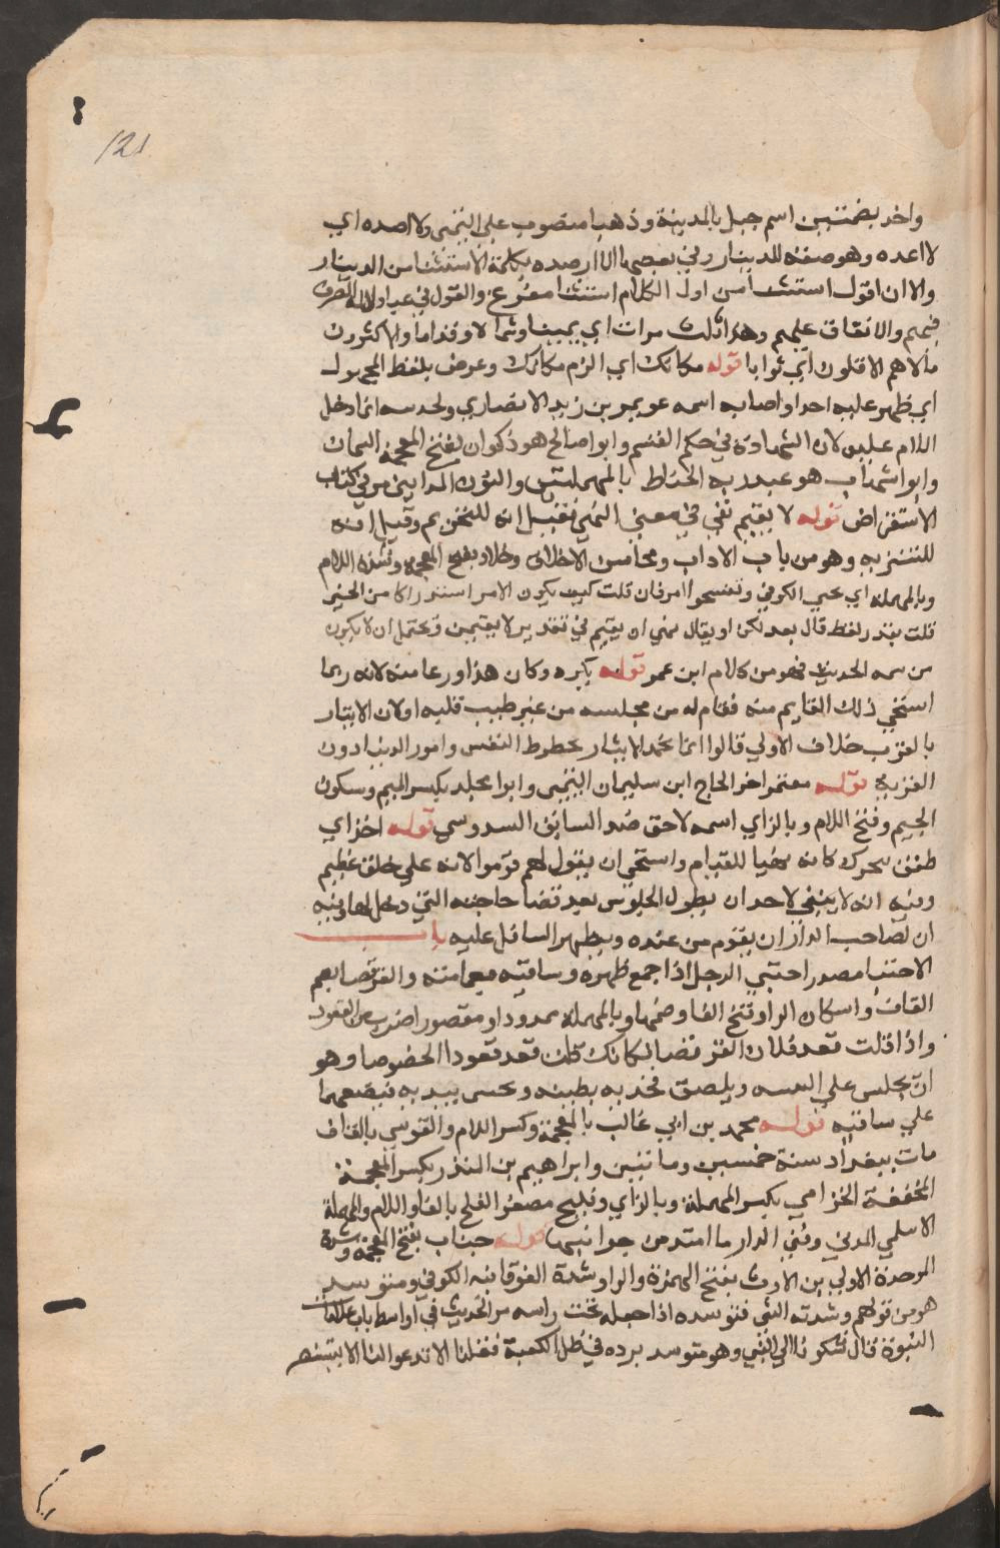 121
واحد بضمتين اسم جبل بالمدينة وذهبا منصوب على التمييز ولا ارصده اي
لا اعده وهو صفة للدينار وفي بعضها الا ارصده بكلمة الاستثنا من الدينار
والا ان اقول استثنا من اول الكلام استثنا مفرغ والقول في عباد الله الصرف
فيهم والانفاق عليهم وهكذا ثلث مرات اي يمينا وشمالا وقداما والاكثرون
مالا هم الاقلون اي ثوابا قوله مكانك اي الزم مكانك وعرض بلفظ المجهول
اي ظهر عليه احد او اصابه اسمه عويمر بن زيد الانصاري ولحدسه انما دخل
اللام عليه لان الشهادة في حكم القسم وابو صالح هو ذكوان بفتح المعجمة السمان
وابو شهاب هو عبد ربه الحناط بالمهملتين والنون المدايني مر في كتاب
الاستقراض قوله لا يقيم نفي في معنى النهي فقيل انه للتحريم وقيل انه
للتنزيه وهو من باب الاداب ومحاسن الاخلاق وخلاد بفتح المعجمة وشدة اللام
وبالمهملة اي يحيى الكوفي وتفسحوا امر فان قلت كيف يكون الامر استدراكا من الخبر
قلت بقدر لفظ قال بعد لكن او يقال نهي ان يقيم في تقدير لا يقيمن ويحتمل ان لا يكون
من تتمه الحديث فهو من كلام ابن عمر قوله يكره وكان هذا ورعا منه لانه ربما
استحي ذلك القايم منه فقام له من مجلسه من غير طيب قلبه او لان الايثار
بالقرب خلاف الاولي قالوا انما يحمد الايثار بحظوظ النفس وامور الدنيا دون
القربة قوله معتمر اخر الحاج ابن سليمان التيمي وابو مجلد بكسر الميم وسكون
الجيم وفتح اللام وبالزاي اسمه لاحق ضد السابق السدوسي قوله اخذ اي
طفق يتحرك كانه يتهيا للقيام واستحي ان يقول لهم قوموا لانه علي خلق عظيم
وفيه انه لا ينبغي لاحد ان يطول الجلوس بعد قضا حاجته التي دخل لها وفيه
ان لصاحب الدار ان يقوم من عنده ويظهر الساقل عليه باب
الاحتبا مصدر احتبي الرجل اذا جمع ظهره وساقيه بعمامته والقرفصا بضم
القاف واسكان الرا وفتح الفا وضمها وبالمهملة ممدودا ومقصورا ضرب من القعود
واذا قلت قعد فلان القرفصا فكانك قلت قعد قعودا مخصوصا وهو
ان يجلس علي اليسه ويلصق فخذيه ببطنه ويحتبي بيديه فيضعهما
علي ساقيه قوله محمد بن ابي غالب بالمعجمة وكسر اللام والقومسي بالقاف
مات ببغداد سنة خمسين وماتين وابراهيم بن المنذر بكسر المعجمة
المخففة الحزامي بكسر المهملة وبالزاي وفليح مصغر الفلح بالفا واللام والمهملة
الاسلمي المدني وفني الدار ما امتد من جوانبها قوله خباب بفتح المعجمة وشدة
الموحدة الاولي بن الارت بفتح الهمزة والرا وشدة الفوقانيه الكوفي ومتوسد
هو من قولهم وسدته الشي فتوسده اذا جعله تحت راسه مر الحديث في اواسط باب علامات
النبوة قال شكونا الي النبي وهو متوسد برده في ظل الكعبة فقلنا الا تدعو لنا الا تستنصر